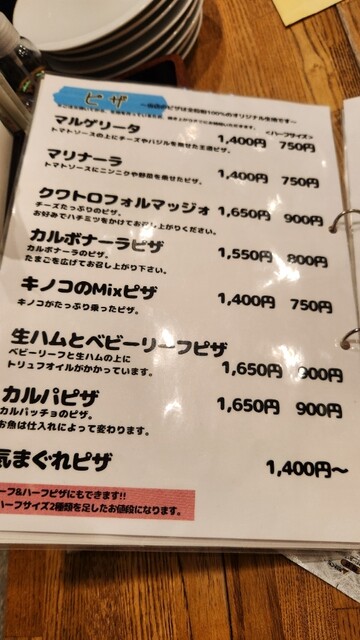 ピザ
〜当店のピザは全粒粉100%のオリジナル生地です〜
<ハーフサイズ>
マルゲリータ 1,400円 750円
トマトソースの上にチーズやバジルを乗せた王道ピザ。
マリナーラ 1,400円 750円
トマトソースにニンニクや野菜を乗せたピザ。
クワトロフォルマッジォ 1,650円 900円
チーズたっぷりのピザ。
お好みでハチミツをかけてお召し上がりください。
カルボナーラピザ 1,550円 800円
カルボナーラのピザ。
たまごを広げてお召し上がり下さい。
キノコのMixピザ 1,400円 750円
キノコがたっぷり乗ったピザ。
生ハムとベビーリーフピザ
ベビーリーフと生ハムの上に
トリュフオイルがかかっています。 1,650円 900円
カルパピザ 1,650円 900円
カルパッチョのピザ。
お魚は仕入れによって変わります。
気まぐれピザ 1,400円〜
ーフ&ハーフピザにもできます!!
ハーフサイズ2種類を足したお値段になります。